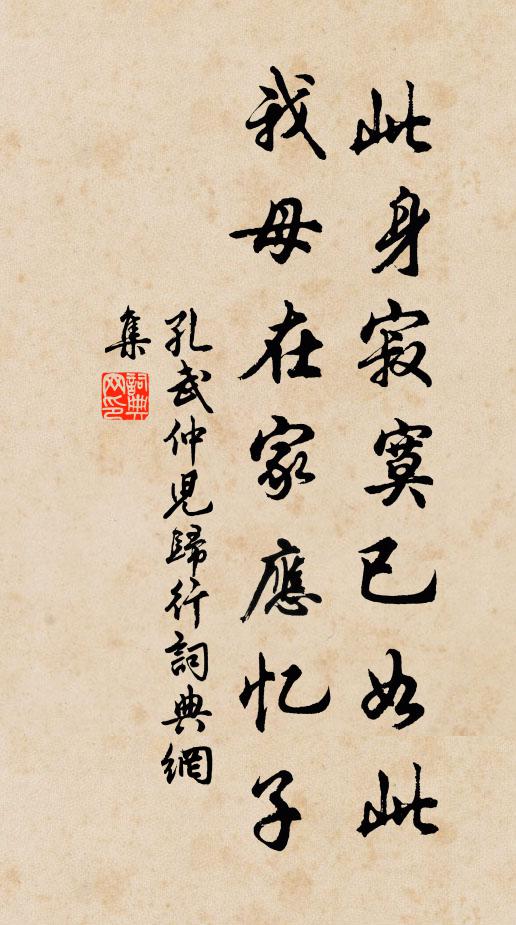 此身寂寞已如此
我母在家應忆子
孔武仲兒歸行詞典網
集
詞典
网印